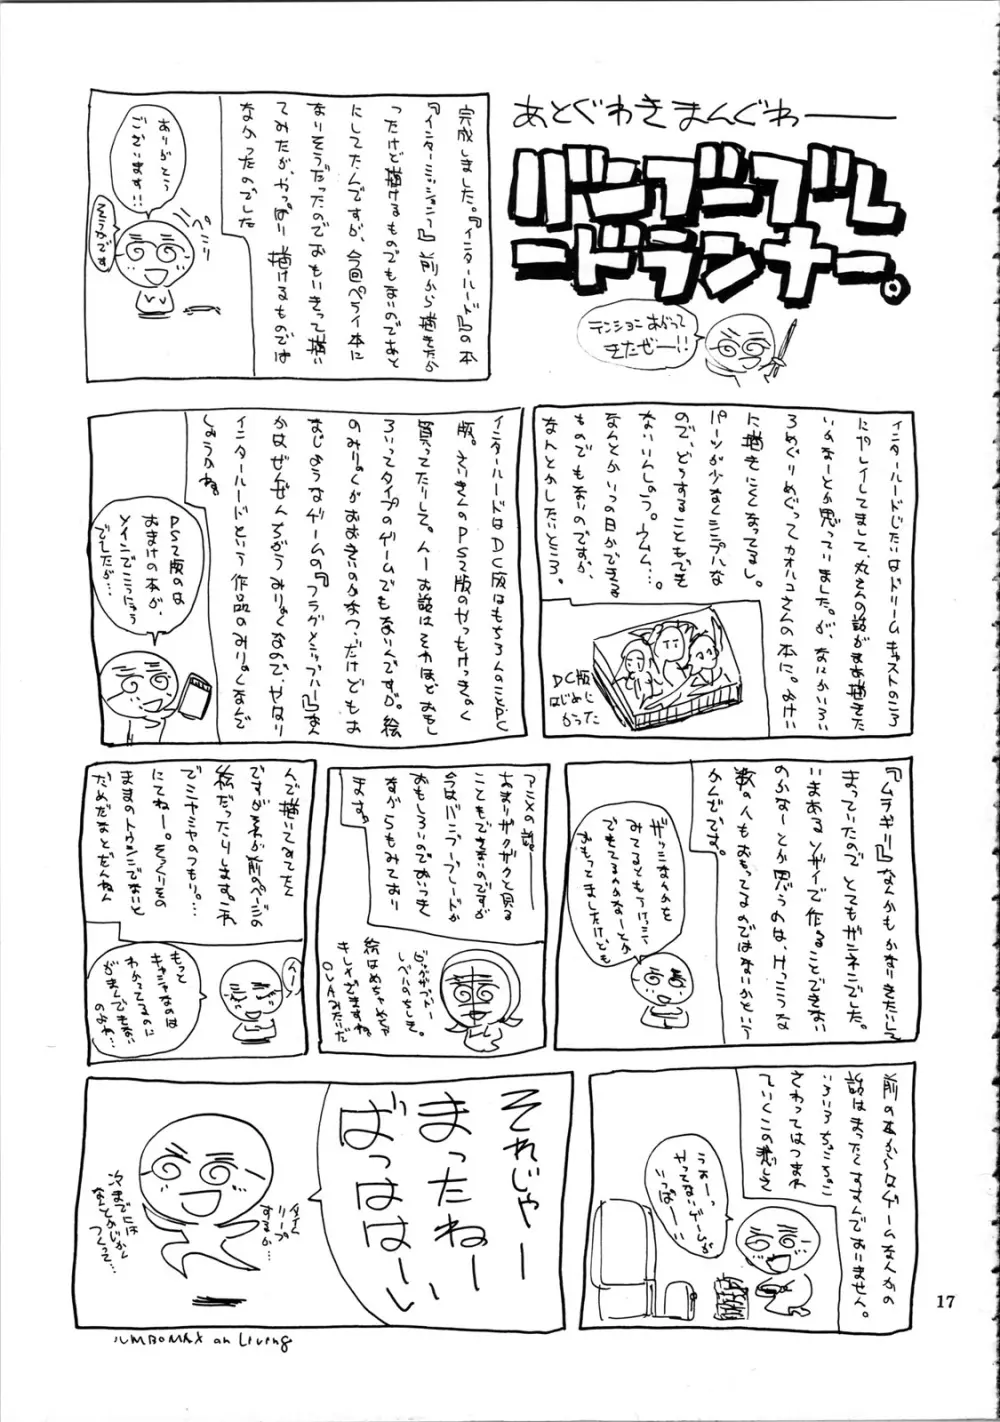 あとぐわきまんぐわ――
バンブーブレ
ードランナー。
テンションあがって
きたぜー!!
完成しました。『インターハード』の本
前から描きたか
ったけど描けるものでもないのであと
にしてたんですが、今回ペライ本に
なりそうだったのでおもいきって描い
てみたが、やっぱり描けるものでは
なかったのでした
ありがとう
ございます!!
そうかです
ペこり
に描きにくくなってるし。
パーツが少なくシンプルな
ので、どうすることもでき
ないんしのう。ウムム…。
なんとかいつの日かできる
ものでもないのですが、
なんとかしたいところ。
DC版
はじめに
かった
インターハードはDC版はもちろんのことPC
版。さいきんのPS2版のやつもけっきょく
買ってたりして。んーお話はそれほどおもし
ろいってタイプのゲームでもないんですが。絵
のみりょくがおおきいのかなっ。だけどもお
インターハードという作品のみりょくなんで
しょうかね。
PS2版の
おまけの本が、
メインでこうにゅう
でしたが…
『ムラギリ』なんかもかなりきたいして
まっていたのでとてもザンネンでした。
いまあるソザイで作ることできない
のかなーとか思うのは、けっこうな
数の人もおもってるのではないかという
かんじです。
みてるともうけっこう
できてるんかなーとか
おもってましたけども
アニメの話。――
あまりザクザクと見る
こともできないのですが
今はバンブーブレードが
おもしろいのでおいっきし
ながらもみており
ます。
絵はめちゃめちゃ
きれいすぎますね。
OVAみたいだ
んで描いてみてたく
ですがそれが前のページの
絵だったりします。これ
でミヤミヤのつもり…。
にてねー。そっくりその
ままのトウシンでないと
だめだなとぜんねん
んー
もっと
キャシャなのは
わかってるのに
がまんできない
のよね…
前の本からはゲームなんかの
話はまったくすすんでおりません。
いろいろちょこちょこ
さわってはつまれ
ていくこの悲しさ
うおーっ
やってないゲームが
いっぱーい!!
それじゃー
まったねー
ばっははーい
タイム
リープ
するか…
次までには
なんとかいかく
つくって…
JUMBOMAX on Living
17